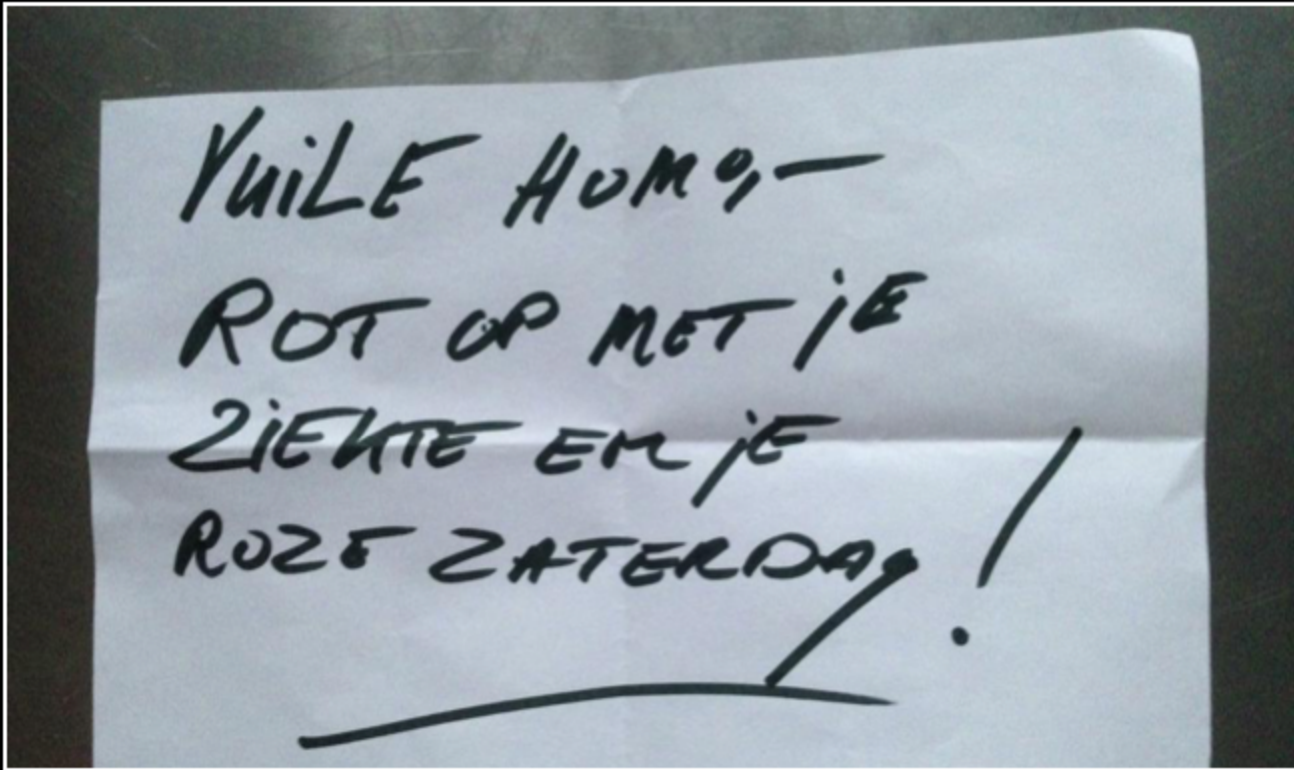 VUiLE HOMO,—
ROT OP MET jE
ZiEKTE EN jE
ROZE ZATERDAG!